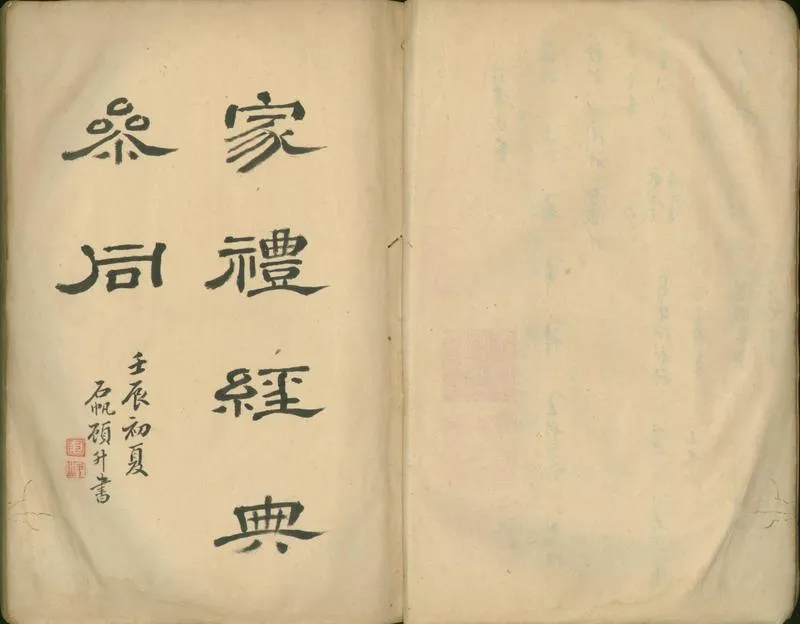 家禮經典
參同
壬辰初夏
石帆顧升書